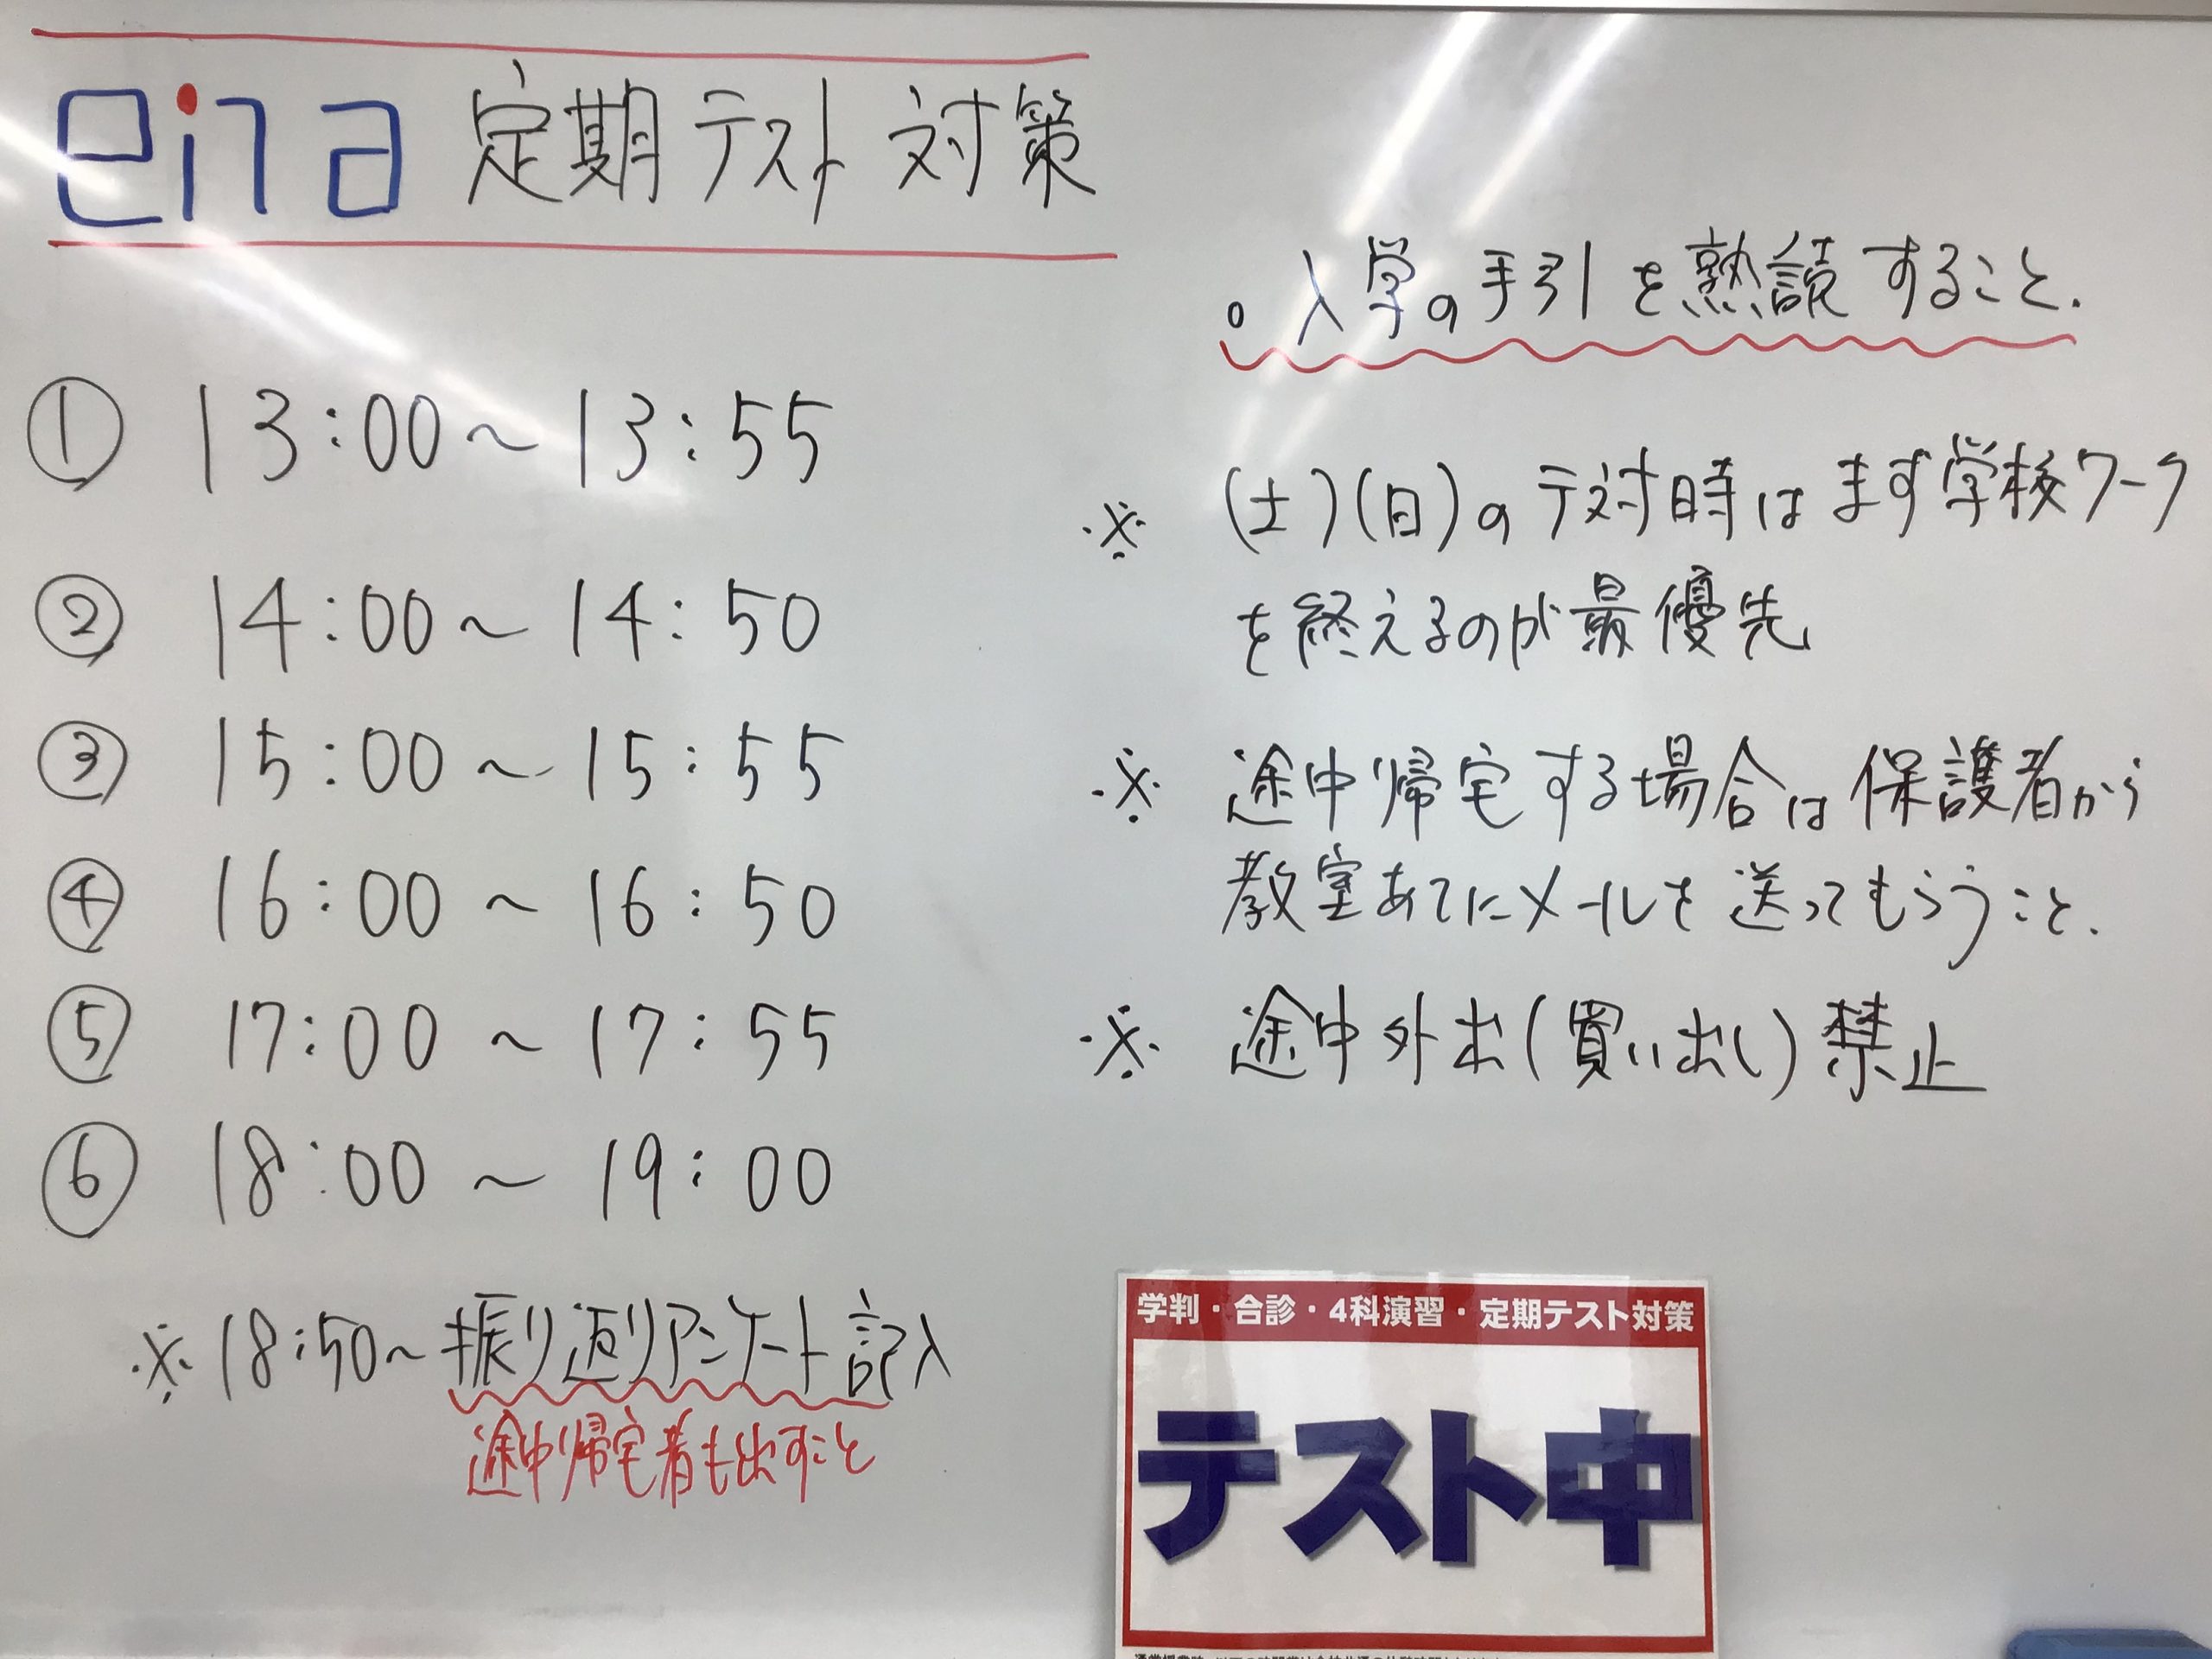 eina 定期テスト対策
① 13:00～13:55
② 14:00～14:50
③ 15:00～15:55
④ 16:00～16:50
⑤ 17:00～17:55
⑥ 18:00～19:00
※18:50～振り返りアンケート記入
途中帰宅者も出すこと
○入学の手引を熟読すること.
※ (土)(日)のテ対時はまず学校ワーク
を終えるのが最優先
※ 途中帰宅する場合は保護者から
教室あてにメールを送ってもらうこと.
※ 途中外出(買い出し)禁止
学判・合診・4科演習・定期テスト対策
テスト中